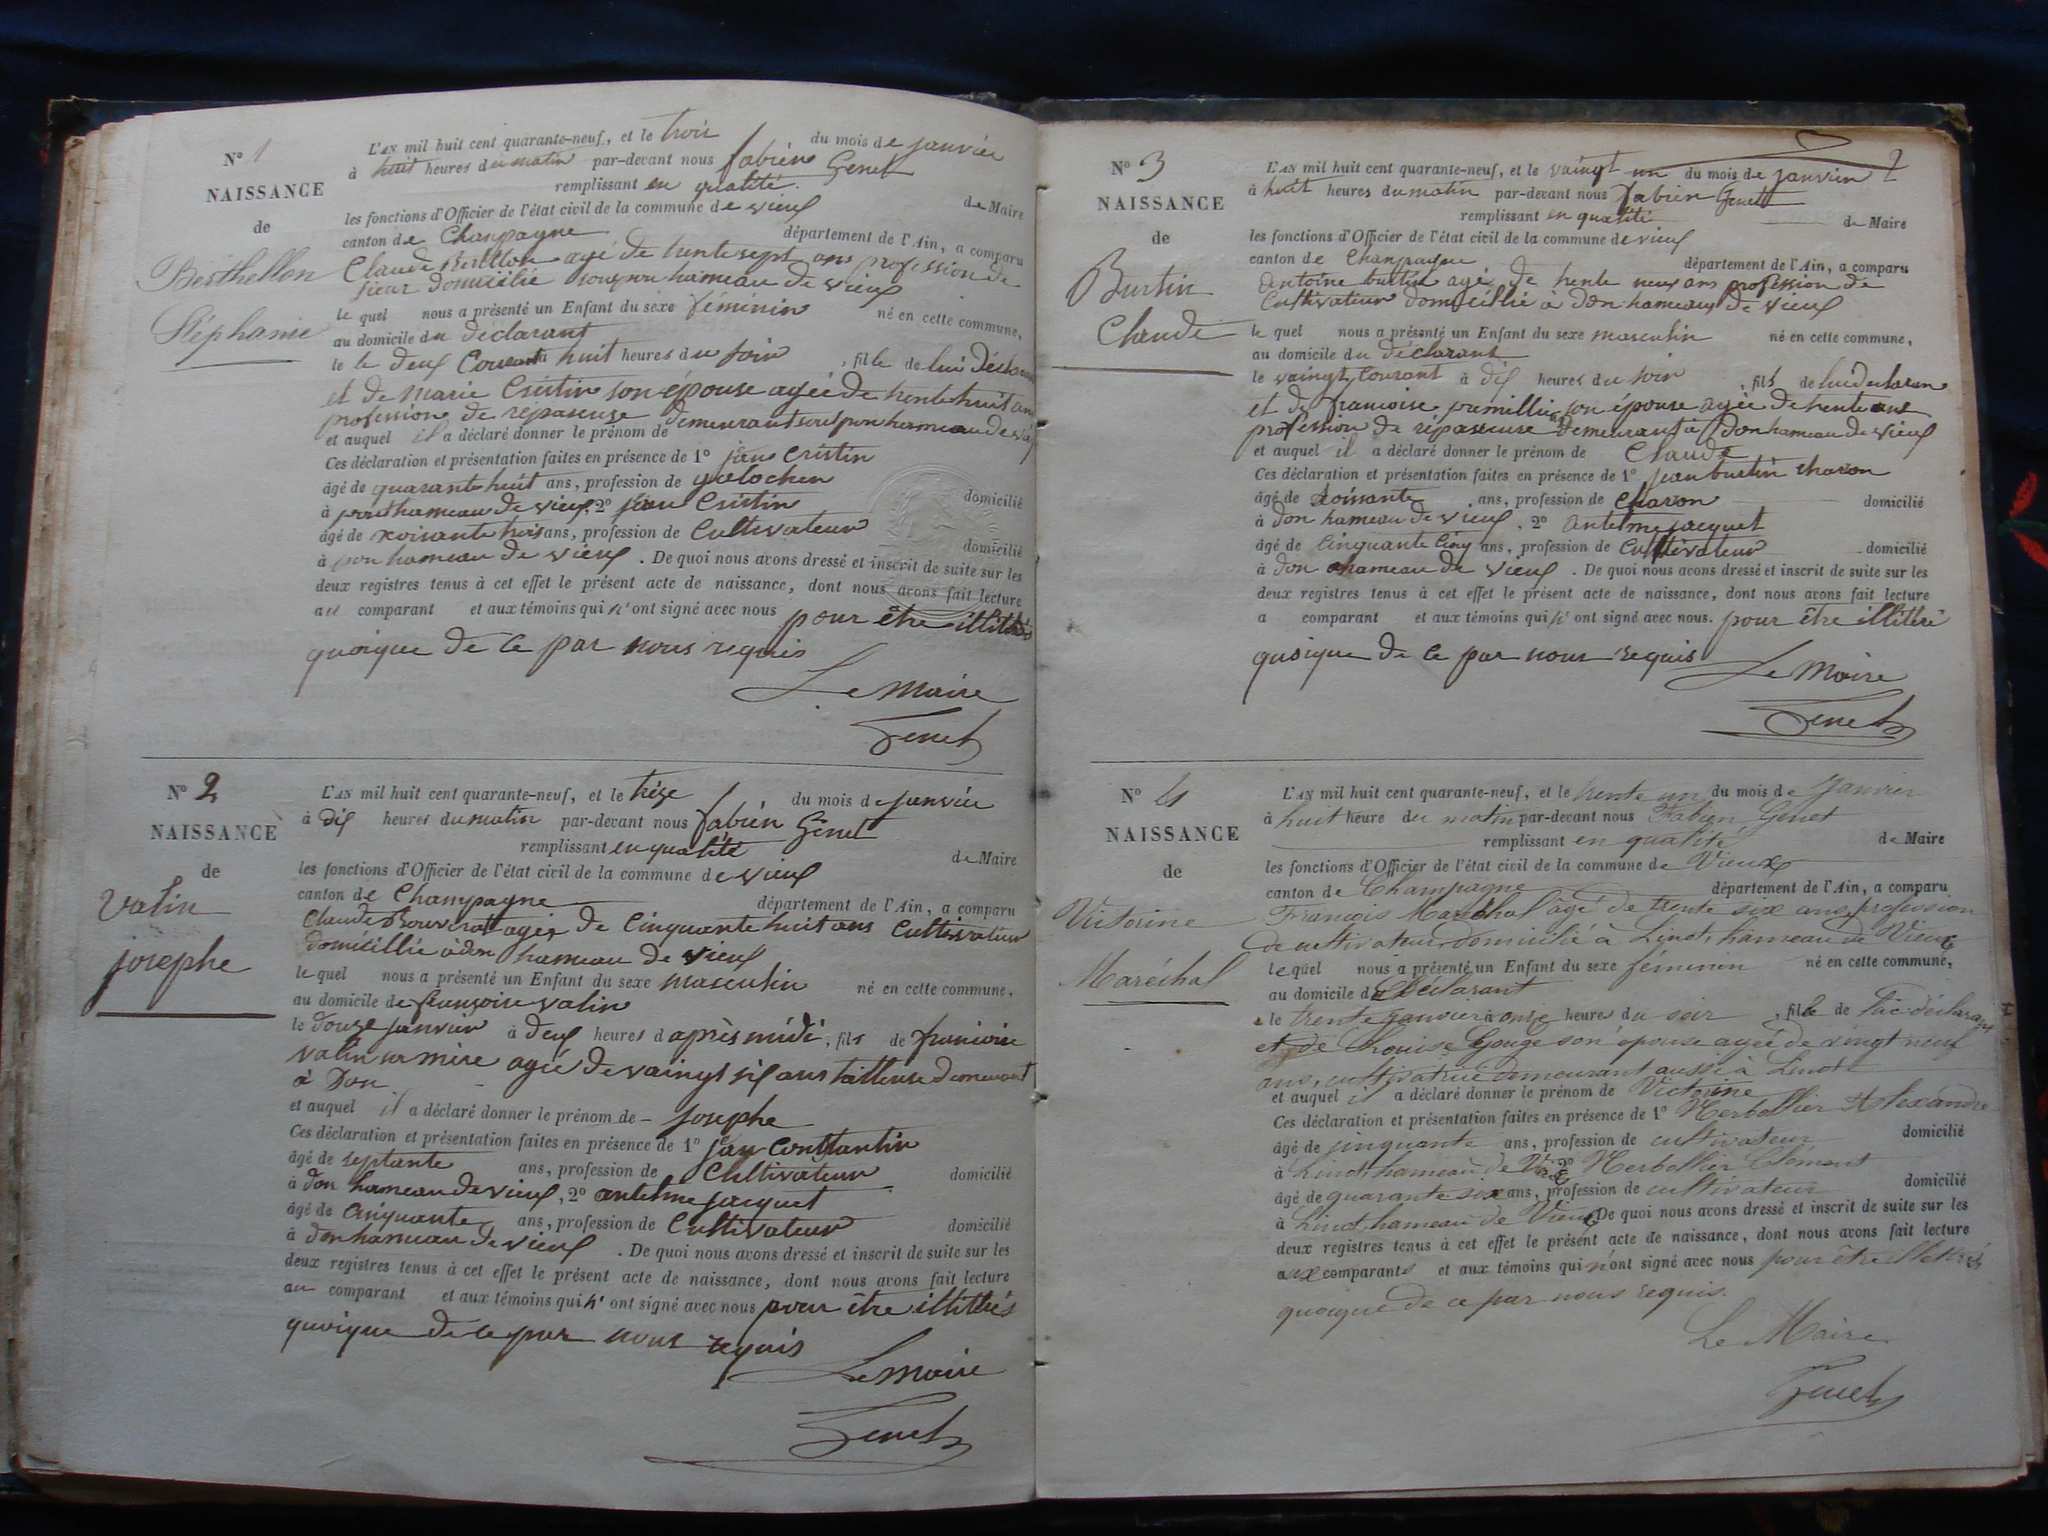 N° 1
NAISSANCE
de
Berthellon
Stéphanie
L'AN mil huit cent quarante-neuf, et le trois du mois de janvier
à huit heures du matin par-devant nous fabien Genet
remplissant en qualité de Maire
les fonctions d'Officier de l'état civil de la commune de vieux
canton de Champagne département de l'Ain, a comparu
Claude agé de trente sept ans profession de
domicilié hameau de vieux
le quel nous a présenté un Enfant du sexe féminin né en cette commune,
au domicile du déclarant
le le deux Courant à huit heures du soir , fille de lui
et de marie Cristin son épouse agée de trente huit ans
profession de repaseuse demeurant hameau de
et auquel il a déclaré donner le prénom de
Ces déclaration et présentation faites en présence de 1° Cristin
âgé de quarante huit ans, profession de domicilié
à hameau de vieux, 2° Cristin
âgé de xoisante trois ans, profession de Cultivateur domicilié
à pon hameau de vieux . De quoi nous avons dressé et inscrit de suite sur les
deux registres tenus à cet effet le présent acte de naissance, dont nous avons fait lecture
au comparant et aux témoins qui n' ont signé avec nous pour être
quoique de ce par nous requis
Le maire
Genet
N° 2
NAISSANCE
de
Valin
josephe
L'AN mil huit cent quarante-neuf, et le trèze du mois de janvier
à dix heures du matin par-devant nous fabien Genet
remplissant en qualité de Maire
les fonctions d'Officier de l'état civil de la commune de vieux
canton de Champagne département de l'Ain, a comparu
Claude agé de Cinquante huit ans Cultivateur
domicillié à don hameau de vieux
le quel nous a présenté un Enfant du sexe masculin né en cette commune,
au domicile de françoise valin
le douze janvier à deux heures d après midi , fils de
valin sa mère agée de vaingt six ans tailleuse demeurant
à Don
et auquel il a déclaré donner le prénom de - josephe
Ces déclaration et présentation faites en présence de 1° Constantin
âgé de septante ans, profession de Cultivateur domicilié
à don hameau de vieux, 2° antelme jacquet
âgé de Cinquante ans, profession de Cultivateur domicilié
à don hameau de vieux . De quoi nous avons dressé et inscrit de suite sur les
deux registres tenus à cet effet le présent acte de naissance, dont nous avons fait lecture
au comparant et aux témoins qui n' ont signé avec nous pour être illitérés
quoique de ce par nous requis
Le maire
Genet
2
N° 3
NAISSANCE
de
Burtin
Claude
L'AN mil huit cent quarante-neuf, et le vaingt un du mois de janvier
à huit heures du matin par-devant nous fabien Genet
remplissant en qualité de Maire
les fonctions d'Officier de l'état civil de la commune de vieux
canton de Champagne département de l'Ain, a comparu
Antoine burtin agé de trente neuf ans profession de
Cultivateur domicillié a don hameau de vieux
le quel nous a présenté un Enfant du sexe masculin né en cette commune,
au domicile du déclarant
le vaingt Courant à dix heures du soir , fils de lui declarant
et de francoise son épouse agée de trente ans
profession de repaseuse demeurant a don hameau de vieux
et auquel il a déclaré donner le prénom de Claude
Ces déclaration et présentation faites en présence de 1° jean burtin charon
âgé de xoisante ans, profession de charon domicilié
à don hameau de vieux , 2° antelme jacquet
âgé de Cinquante Cinq ans, profession de Cultivateur domicilié
à don hameau de vieux . De quoi nous avons dressé et inscrit de suite sur les
deux registres tenus à cet effet le présent acte de naissance, dont nous avons fait lecture
a comparant et aux témoins qui n' ont signé avec nous. pour être illitéré
quoique de ce par nous requis
Le Maire
Genet
N° 4
NAISSANCE
de
Victorine
Maréchal
L'AN mil huit cent quarante-neuf, et le trente un du mois de Janvier
à huit heure du matin par-devant nous Fabien Genet
remplissant en qualité de Maire
les fonctions d'Officier de l'état civil de la commune de Vieux
canton de Champagne département de l'Ain, a comparu
François Maréchal âgé de trente six ans, profession
de cultivateur domicilié à Linod, hameau de Vieux
le quel nous a présenté un Enfant du sexe féminin né en cette commune,
au domicile du Déclarant
le trente janvier à onze heure du soir , fille de
et de Louise Gouge son épouse agée de vingt neuf
ans, cultivatrice demeurant aussi à Linod
et auquel il a déclaré donner le prénom de Victorine
Ces déclaration et présentation faites en présence de 1° Herbellier Alexandre
âgé de cinquante ans, profession de cultivateur domicilié
à Linod, hameau de 2° Herbellier Clément
âgé de quarante six ans, profession de cultivateur domicilié
à Linod hameau de Vieux De quoi nous avons dressé et inscrit de suite sur les
deux registres tenus à cet effet le présent acte de naissance, dont nous avons fait lecture
aux comparants et aux témoins qui n'ont signé avec nous pour être illetrés
quoique de ce par nous requis.
Le Maire
Genet